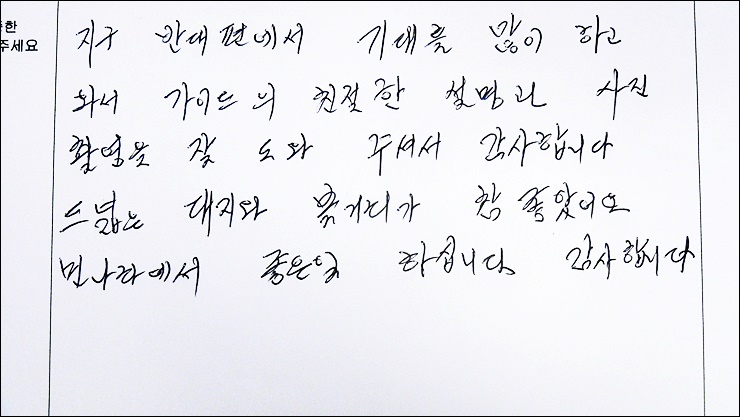 한
주세요
지구 반대편에서 기대를 많이 하고
와서 가이드의 친절한 설명과 사진
촬영을 잘 도와 주셔서 감사합니다
드넓은 대지와 볼거리가 참 좋았어요
먼나라에서 좋은일 하십니다. 감사합니다